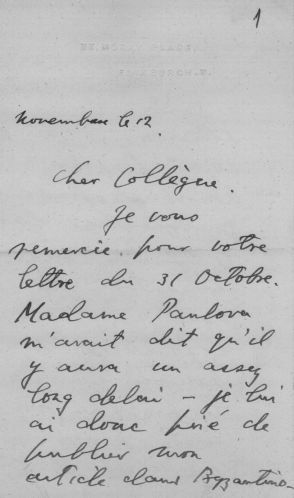 1
novembre le 12.
Cher Collègue.
Je vous
remercie pour votre
lettre du 31 Octobre.
Madame Pavlova
m'avait dit qu'il
y aura un assez
long delai – je lui
ai donc prié de
publier mon
article dans Byzantino-